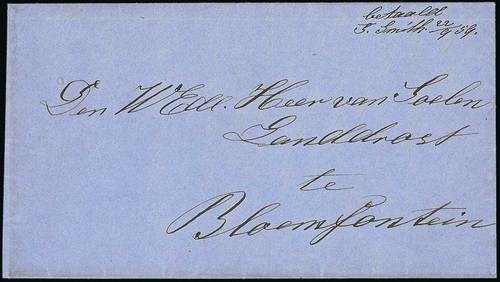 betaald
T. Smith 22/9 59.
Den WEdl. Heer van Soelen
Landdrost
te
Bloemfontein